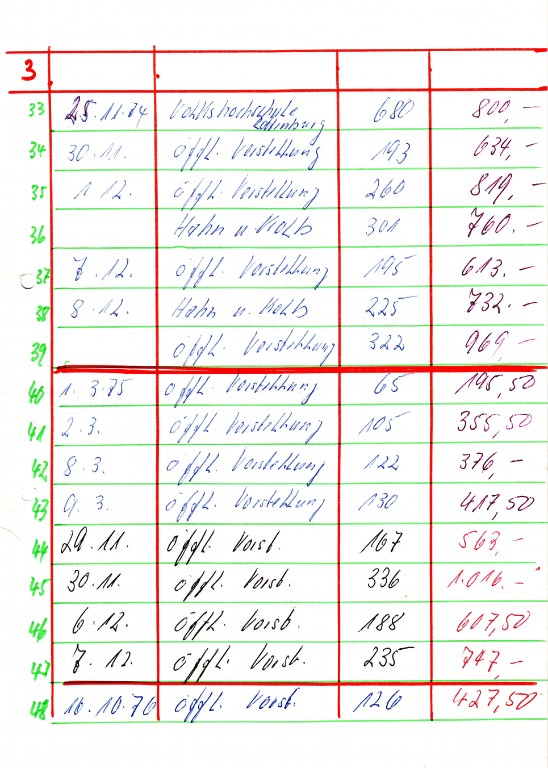 3
33 25.11.74 Volkshochschule 680 800,-
34 30.11. öffl. Vorstellung 193 634,-
35 1.12. öffl. Vorstellung 260 819,-
36 Hahn u. Kolb 301 760.-
37 7.12. öffl. Vorstellung 195 613.-
38 8.12. Hahn u. Kolb 225 732.-
39 öffl. Vorstellung 322 969,-
40 1.3.75 öffl. Vorstellung 65 195,50
41 2.3. öffl. Vorstellung 105 355,50
42 8.3. öffl. Vorstellung 122 376,-
43 9.3. öffl. Vorstellung 130 417,50
44 29.11. öffl. Vorst. 167 563,-
45 30.11. öffl. Vorst. 336 1.016.-
46 6.12. öffl. Vorst. 188 607,50
47 7.12. öffl. Vorst. 235 747,-
48 10.76 öffl. Vorst. 126 427,50